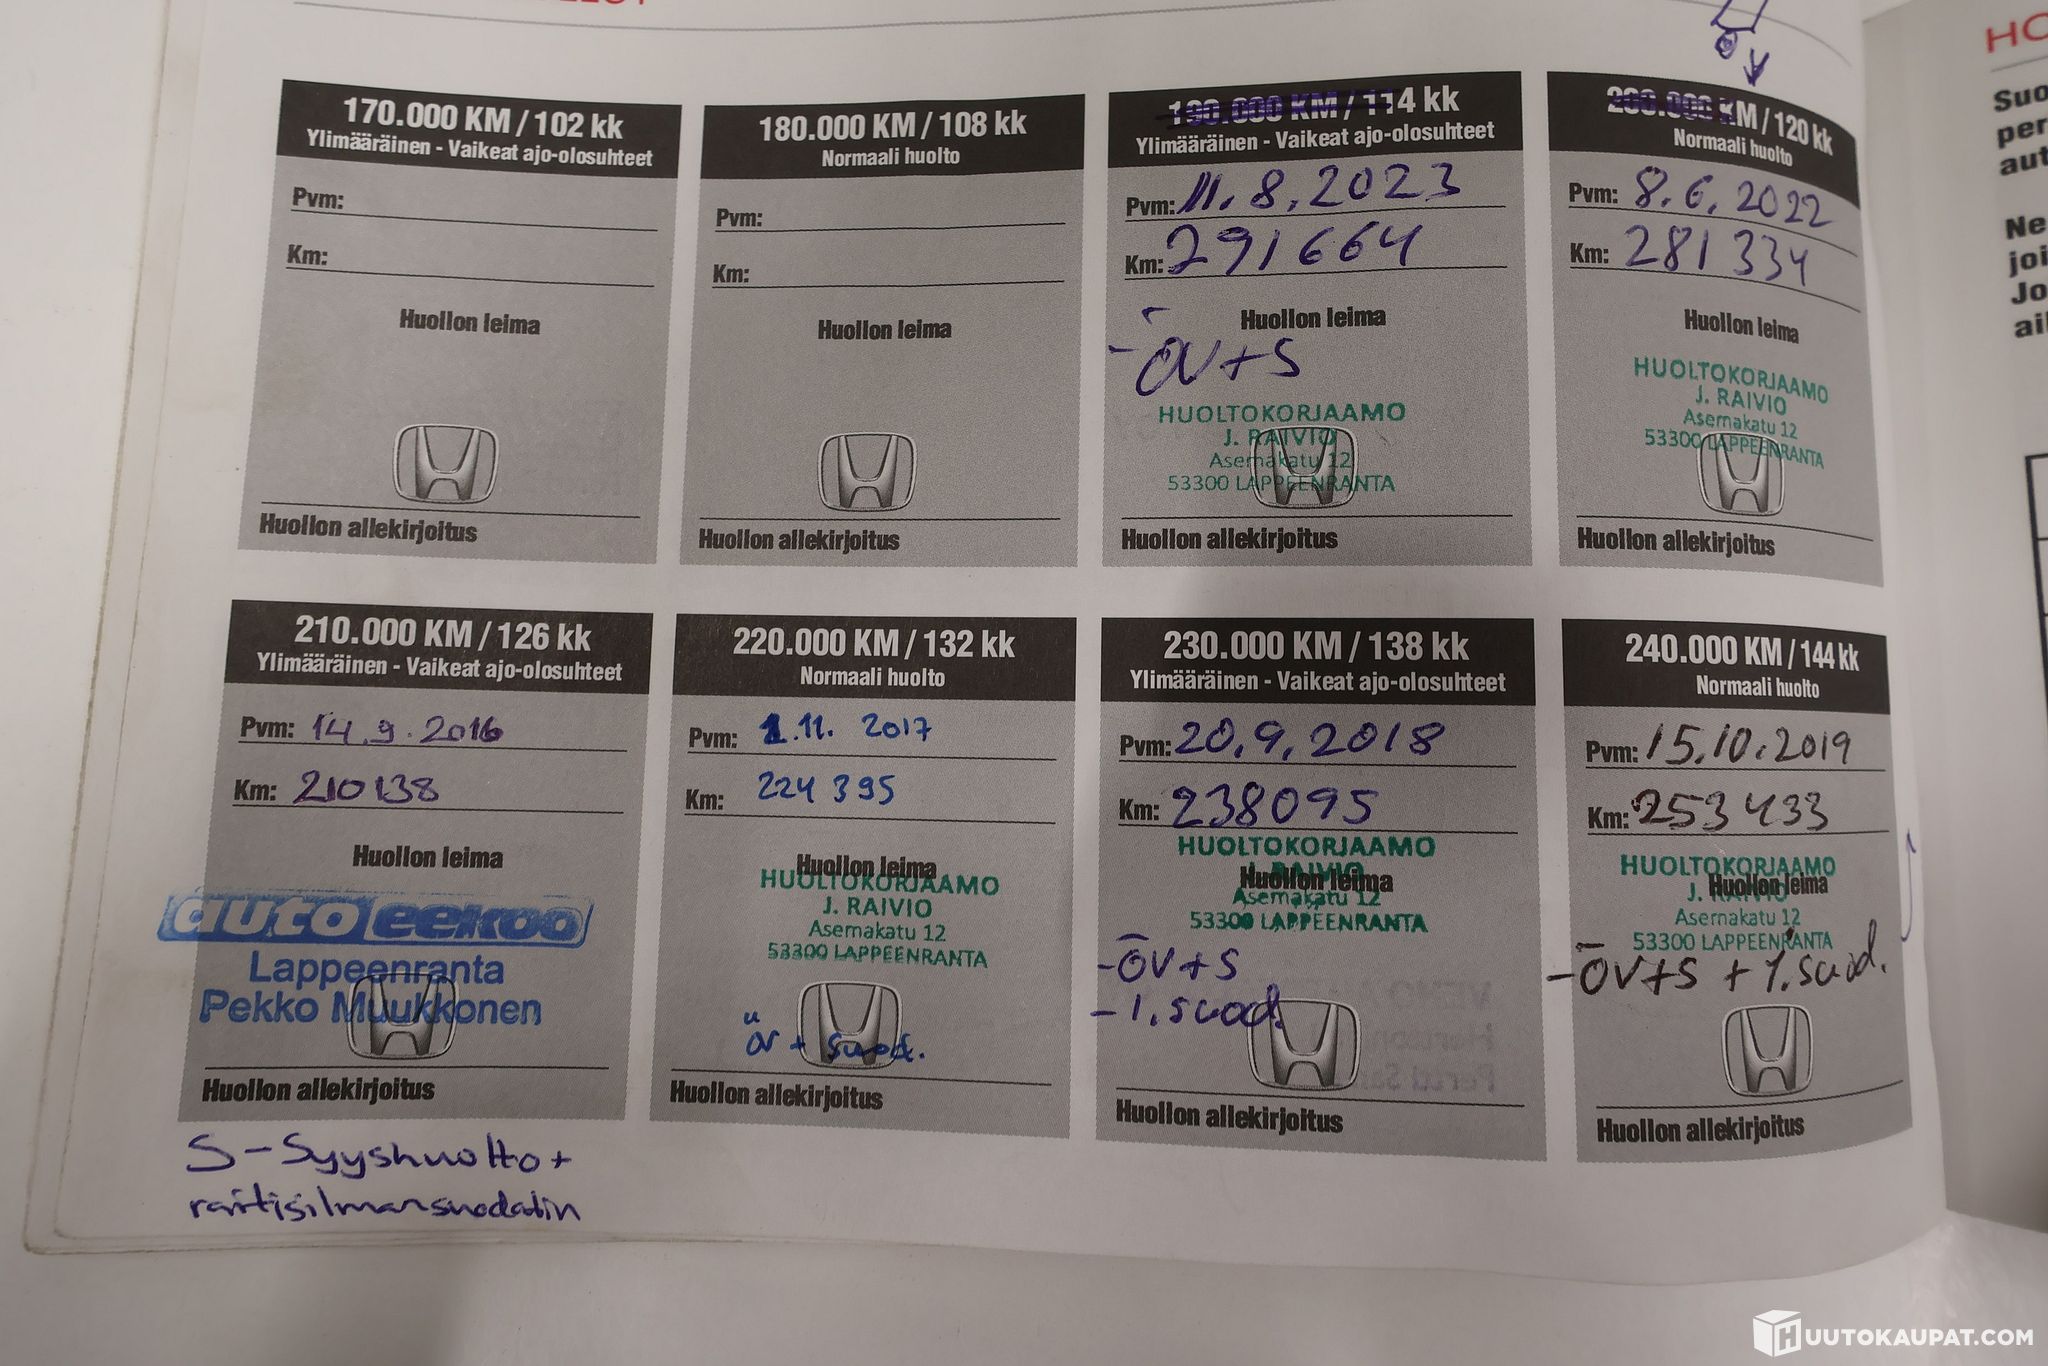 170.000 KM / 102 kk
Ylimääräinen - Vaikeat ajo-olosuhteet
Pvm:
Km:
Huollon leima
Huollon allekirjoitus
180.000 KM / 108 kk
Normaali huolto
Pvm:
Km:
Huollon leima
Huollon allekirjoitus
190.000 KM / 114 kk
Ylimääräinen - Vaikeat ajo-olosuhteet
Pvm: 11.8.2023
Km: 291664
Huollon leima
- ÖV+S
HUOLTOKORJAAMO
J. RAIVIO
Asemakatu 12
53300 LAPPEENRANTA
Huollon allekirjoitus
200.000 KM / 120 kk
Normaali huolto
Pvm: 8.6.2022
Km: 281 334
Huollon leima
HUOLTOKORJAAMO
J. RAIVIO
Asemakatu 12
53300 LAPPEENRANTA
Huollon allekirjoitus
210.000 KM / 126 kk
Ylimääräinen - Vaikeat ajo-olosuhteet
Pvm: 14.9.2016
Km: 210138
Huollon leima
auto eekoo
Lappeenranta
Pekko Muukkonen
Huollon allekirjoitus
S - Syyshuolto +
raitisilmansuodatin
220.000 KM / 132 kk
Normaali huolto
Pvm: 1.11. 2017
Km: 224 395
Huollon leima
HUOLTOKORJAAMO
J. RAIVIO
Asemakatu 12
53300 LAPPEENRANTA
öv + suod.
Huollon allekirjoitus
230.000 KM / 138 kk
Ylimääräinen - Vaikeat ajo-olosuhteet
Pvm: 20.9.2018
Km: 238095
HUOLTOKORJAAMO
J. RAIVIO
Huollon leima
Asemakatu 12
53300 LAPPEENRANTA
- ÖV+S
- 1.suod.
Huollon allekirjoitus
240.000 KM / 144 kk
Normaali huolto
Pvm: 15.10.2019
Km: 253 433
HUOLTOKORJAAMO
J. RAIVIO
Huollon leima
Asemakatu 12
53300 LAPPEENRANTA
- ÖV+S + 1.suod.
Huollon allekirjoitus
HO
Suo
per
aut
Ne
joi
Jo
ail
HUUTOKAUPAT.COM